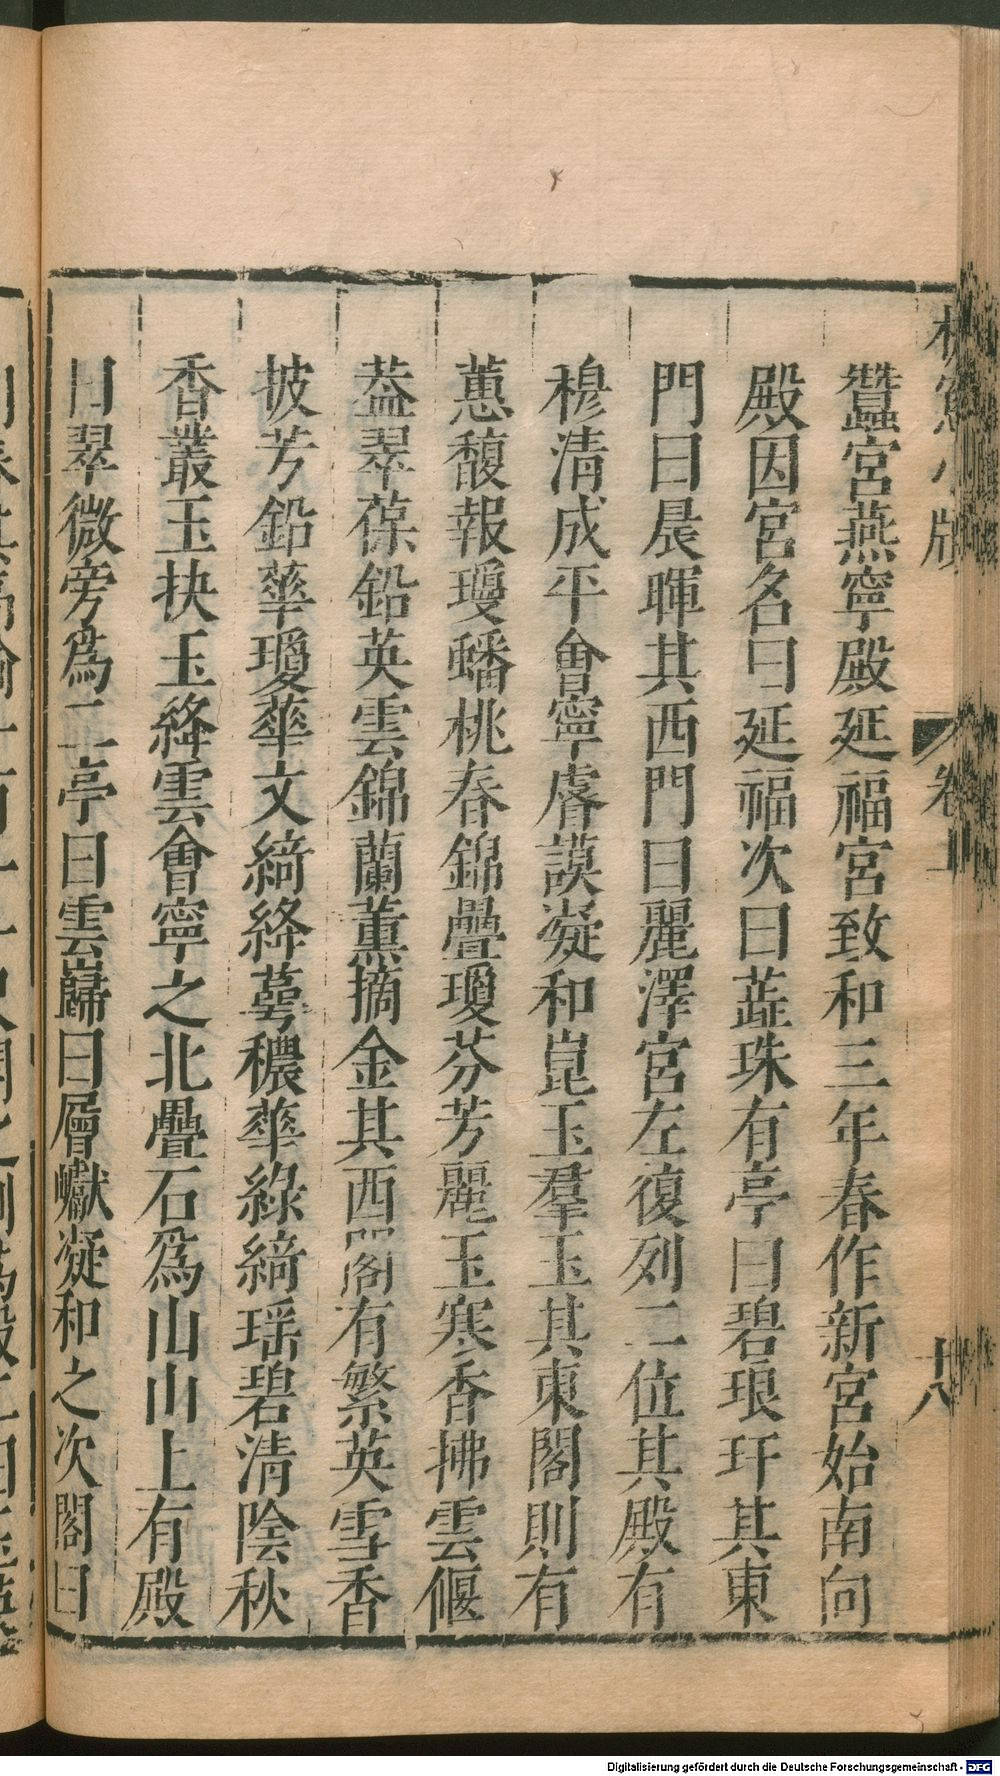 蠶宮燕寧殿延福宮致和三年春作新宮始南向
殿因宮名曰延福次曰蘂珠有亭曰碧琅玕其東
門曰晨暉其西門曰麗澤宮左復列二位其殿有
穆清成平會寧睿謨凝和崑玉羣玉其東閣則有
蕙馥報瓊蟠桃春錦疊瓊芬芳麗玉寒香拂雲偃
葢翠葆鉛英雲錦蘭薰摘金其西閣有繁英雪香
披芳鉛華瓊華文綺絳蕚穠華綠綺瑶碧清陰秋
香叢玉抉玉絳雲會寧之北疊石爲山山上有殿
曰翠微旁爲二亭曰雲巋曰層巘凝和之次閣曰
卷十
十八
Digitalisierung gefördert durch die Deutsche Forschungsgemeinschaft - DFG